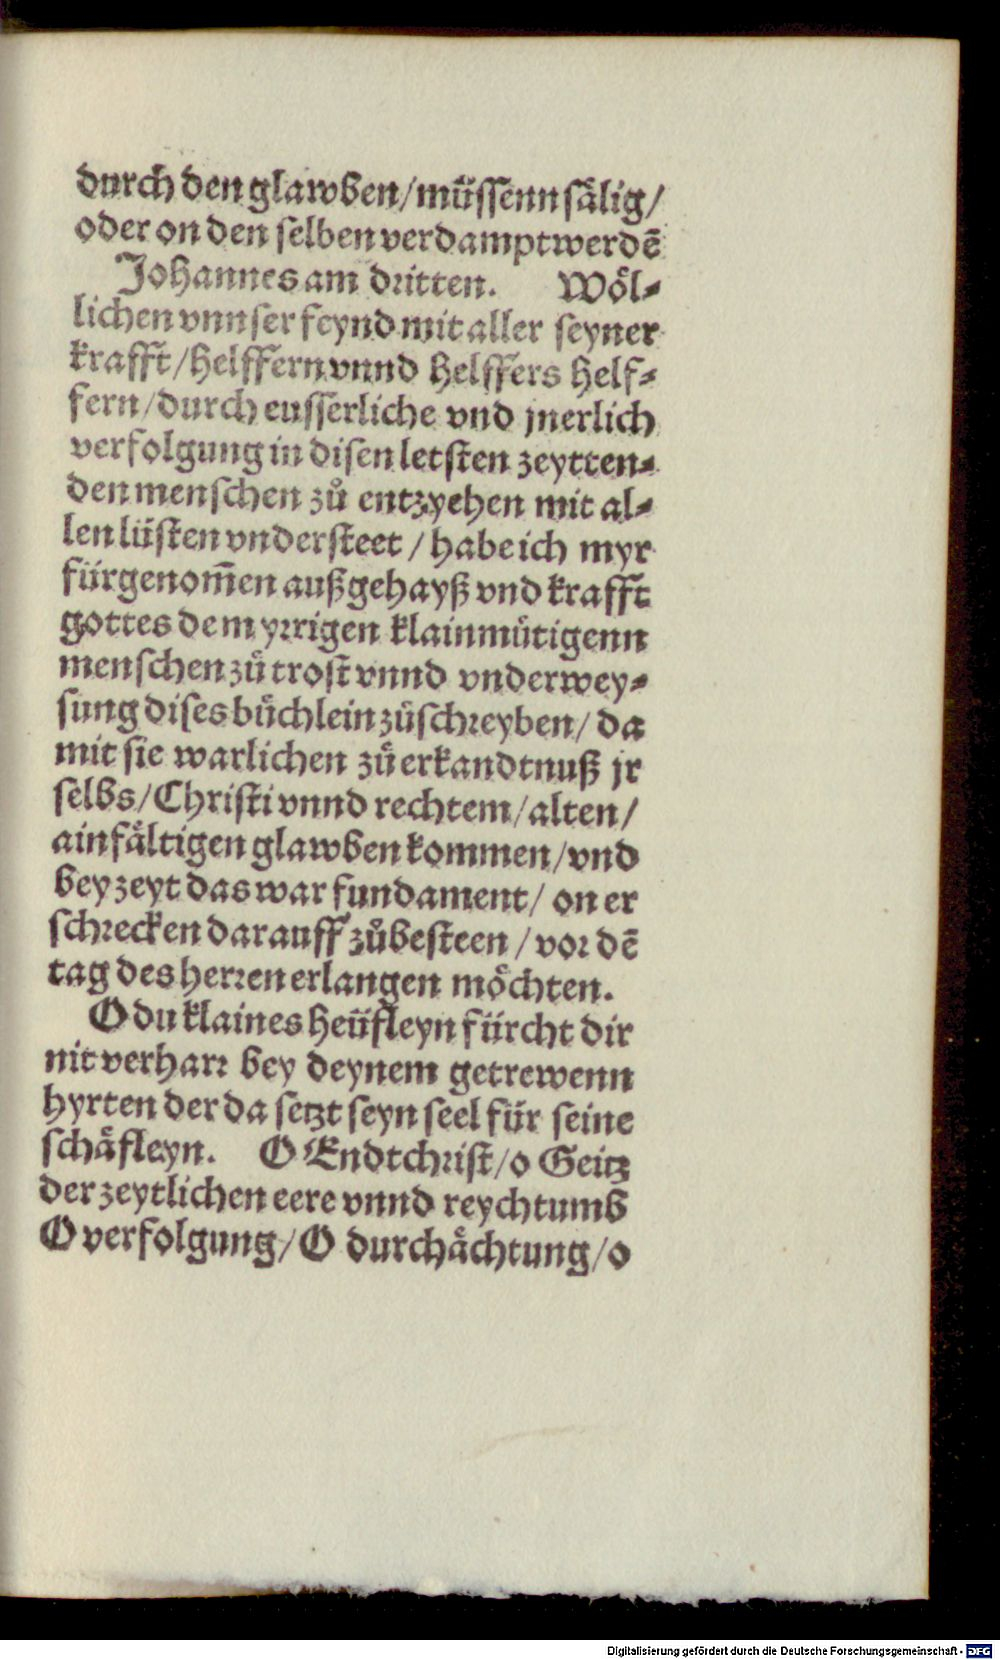 durch den glawben/müssenn sälig/
oder on den selben verdampt werdē
Johannes am dritten. Wöl-
lichen vnnser feynd mit aller seyner
krafft/helffern vnnd helffers helf-
fern/durch eusserliche vnd jnerlich
verfolgung in disen letsten zeytten-
den menschen zů entzyehen mit al-
len lüsten vndersteet/habe ich myr
fürgenom̄en auß gehayß vnd krafft
gottes dem yrrigen klainmütigenn
menschen zů trost vnnd vnderwey-
sung dises büchlein zůschreyben/da
mit sie warlichen zů erkandtnuß jr
selbs/Christi vnnd rechtem/alten/
ainfältigen glawben kommen/vnd
bey zeyt das war fundament/on er
schrecken darauff zůbesteen/vor dē
tag des herren erlangen möchten.
O du klaines heüfleyn fürcht dir
nit verharr bey deynem getrewenn
hyrten der da setzt seyn seel für seine
schäfleyn. O Endtchrist/o Geitz
der zeytlichen eere vnnd reychtumb
O verfolgung/O durchächtung/o
Digitalisierung gefördert durch die Deutsche Forschungsgemeinschaft - DFG